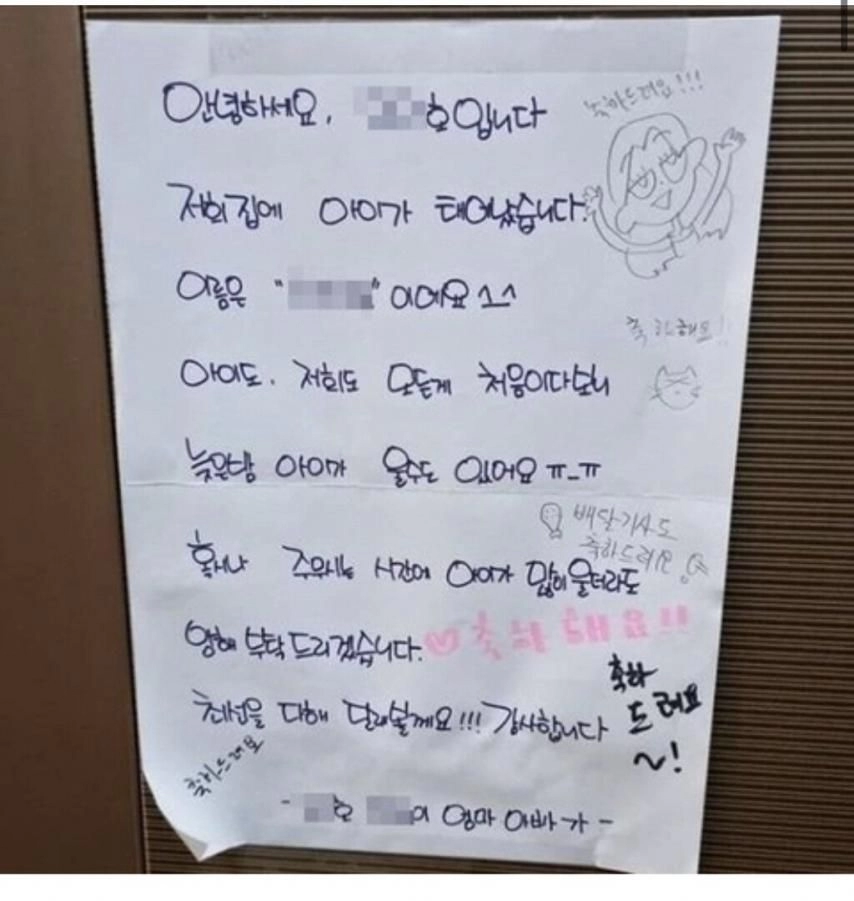 안녕하세요, 호입니다
축하드려요!!!
저희 집에 아이가 태어났습니다.
이름은 " "이에요^^
축하해요!!
아이도, 저희도 모든게 처음이다보니
늦은밤 아이가 울수도 있어요 ㅠ_ㅠ
배달기사도
축하드려요
혹시나 주무시는 시간에 아이가 많이 울더라도
양해 부탁드리겠습니다.
♡축하해요!!
축하
드려요
~!
최선을 다해 달래볼께요!!! 감사합니다
축하드려요
- 호 이 엄마 아빠가 -